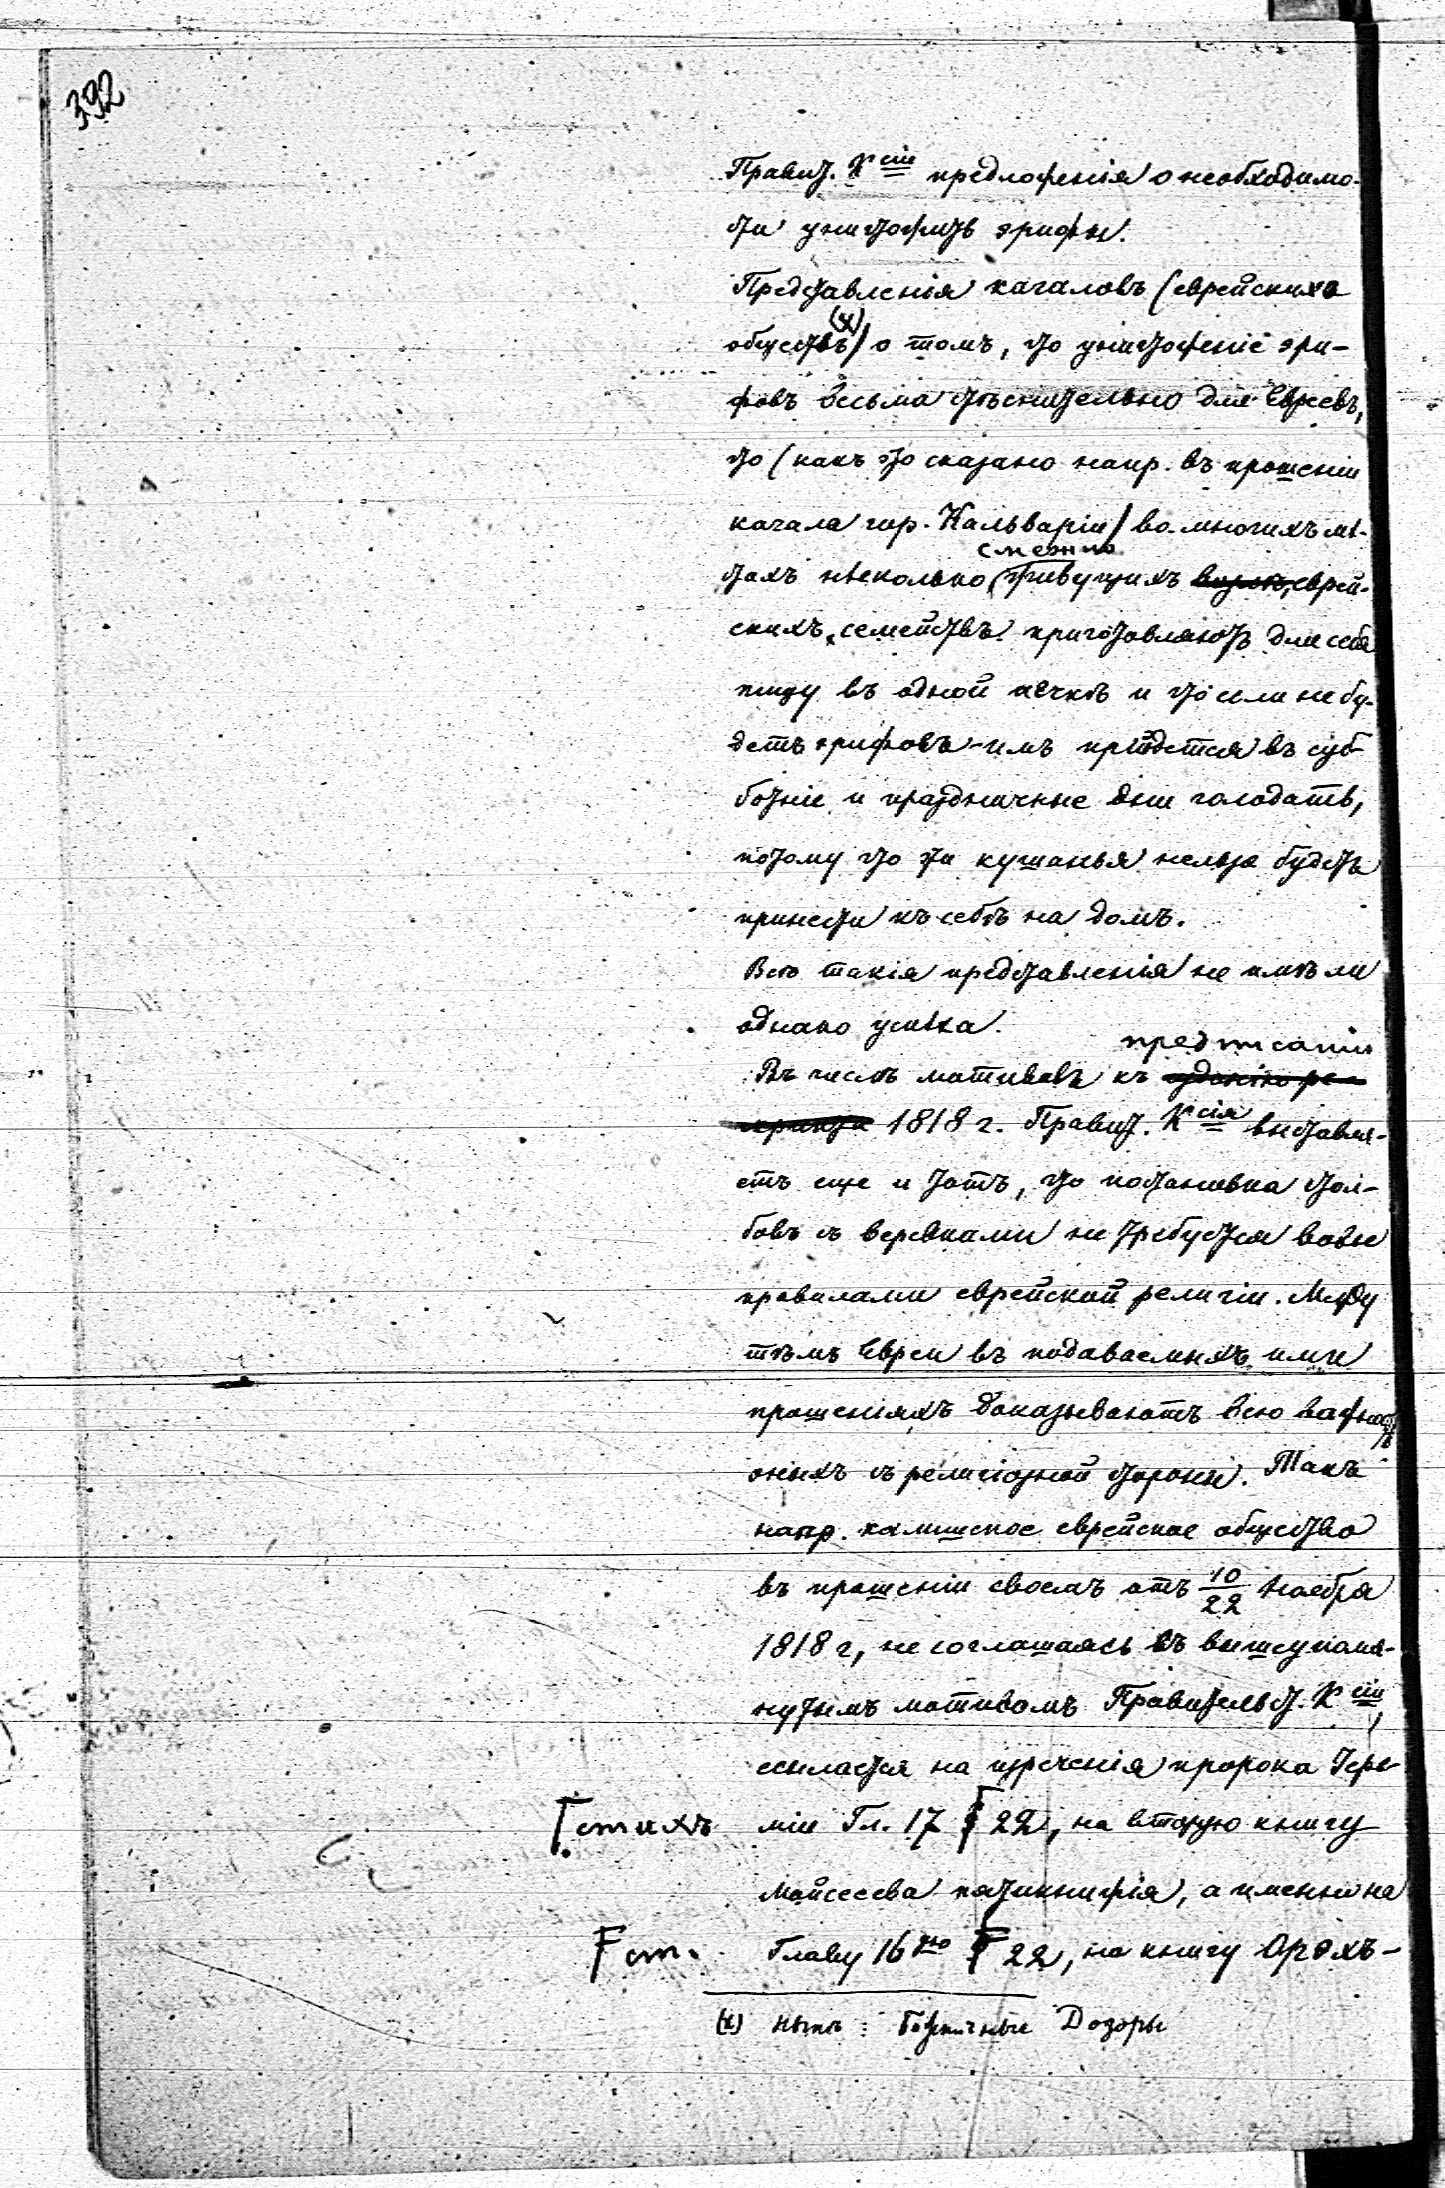 392
Правит. Ксіи предложенія о необходимо-
сти уничтожить эрифы.
Представленія кагаловъ (еврейскихъ
обществъ) (х) о томъ, что уничтоженіе эри-
фовъ весьма стѣснительно для Евреевъ,
что (какъ это сказано напр. въ прошеніи
кагала гор. Кальваріи) во многихъ мѣ-
стахъ нѣсколько смежно живущихъ еврей-
скихъ семействъ приготовляютъ для себя
пищу въ одной печкѣ и что если не бу-
детъ эрифовъ - имъ прійдется въ суб-
ботніе и праздничные дни голодать,
потому что эти кушанья нельзя будетъ
принести къ себѣ на домъ.
Всѣ такія представленія не имѣли
однако успѣха.
Въ числѣ мотивовъ къ предписанію
1818 г. Правит. Ксія выставля-
етъ еще и тотъ, что постановка стол-
бовъ съ веревками не требуется вовсе
правилами еврейской религіи. Между
тѣмъ Евреи въ подаваемыхъ ими
прошеніяхъ доказываютъ всю важность
оныхъ съ религіозной стороны. Такъ
напр. калишское еврейское общество
въ прошеніи своемъ отъ 10/22 Ноября
1818 г, не соглашаясь съ вышеупомя-
нутымъ мотивомъ Правительст. Ксіи,
ссылается на изреченія пророка Іере-
міи Гл. 17 стихъ 22, на вторую книгу
Мойсеева пятикнижія, а именно на
Главу 16ую ст. 22, на книгу Орэхъ-
(х) нынѣ: Божничные Дозоры